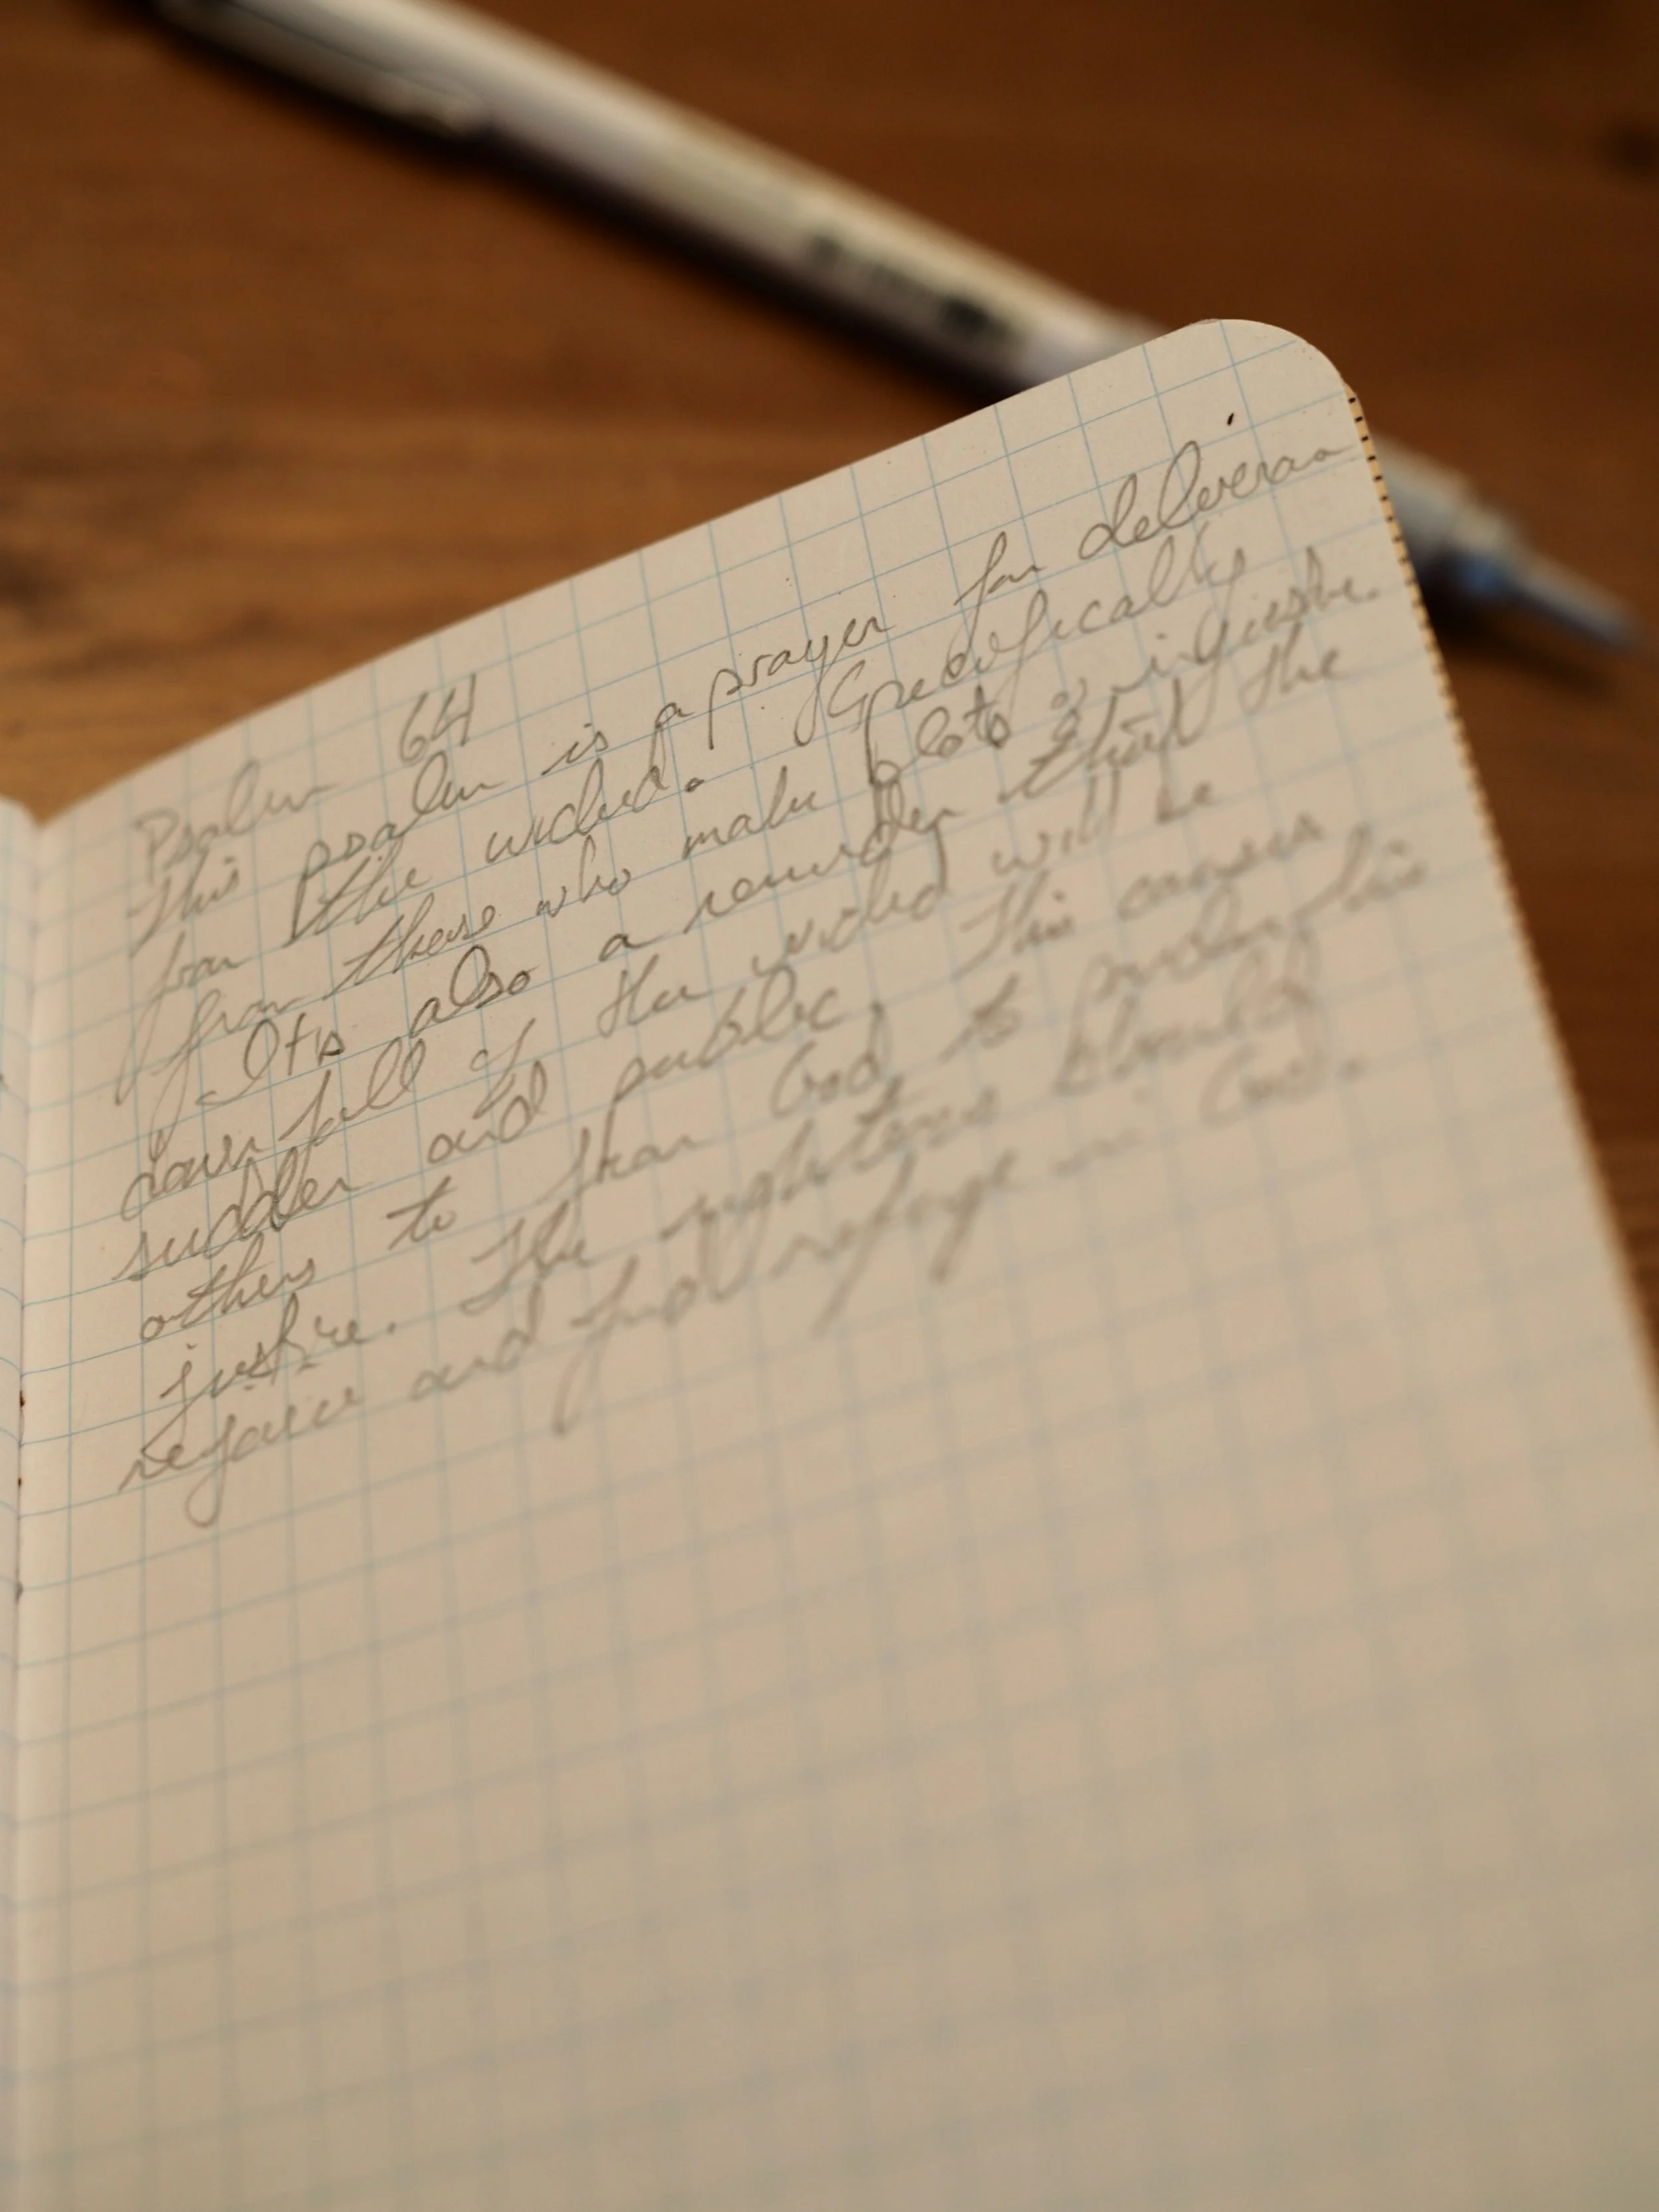 Psalm 64
This psalm is a prayer for deliveran
from the wicked. Specifically
from those who make plots & injustice.
It is also a reminder that the
downfall of the wicked will be
sudden and public. This causes
others to fear God to ponder his
justice. The righteous should
rejoice and find refuge in God.